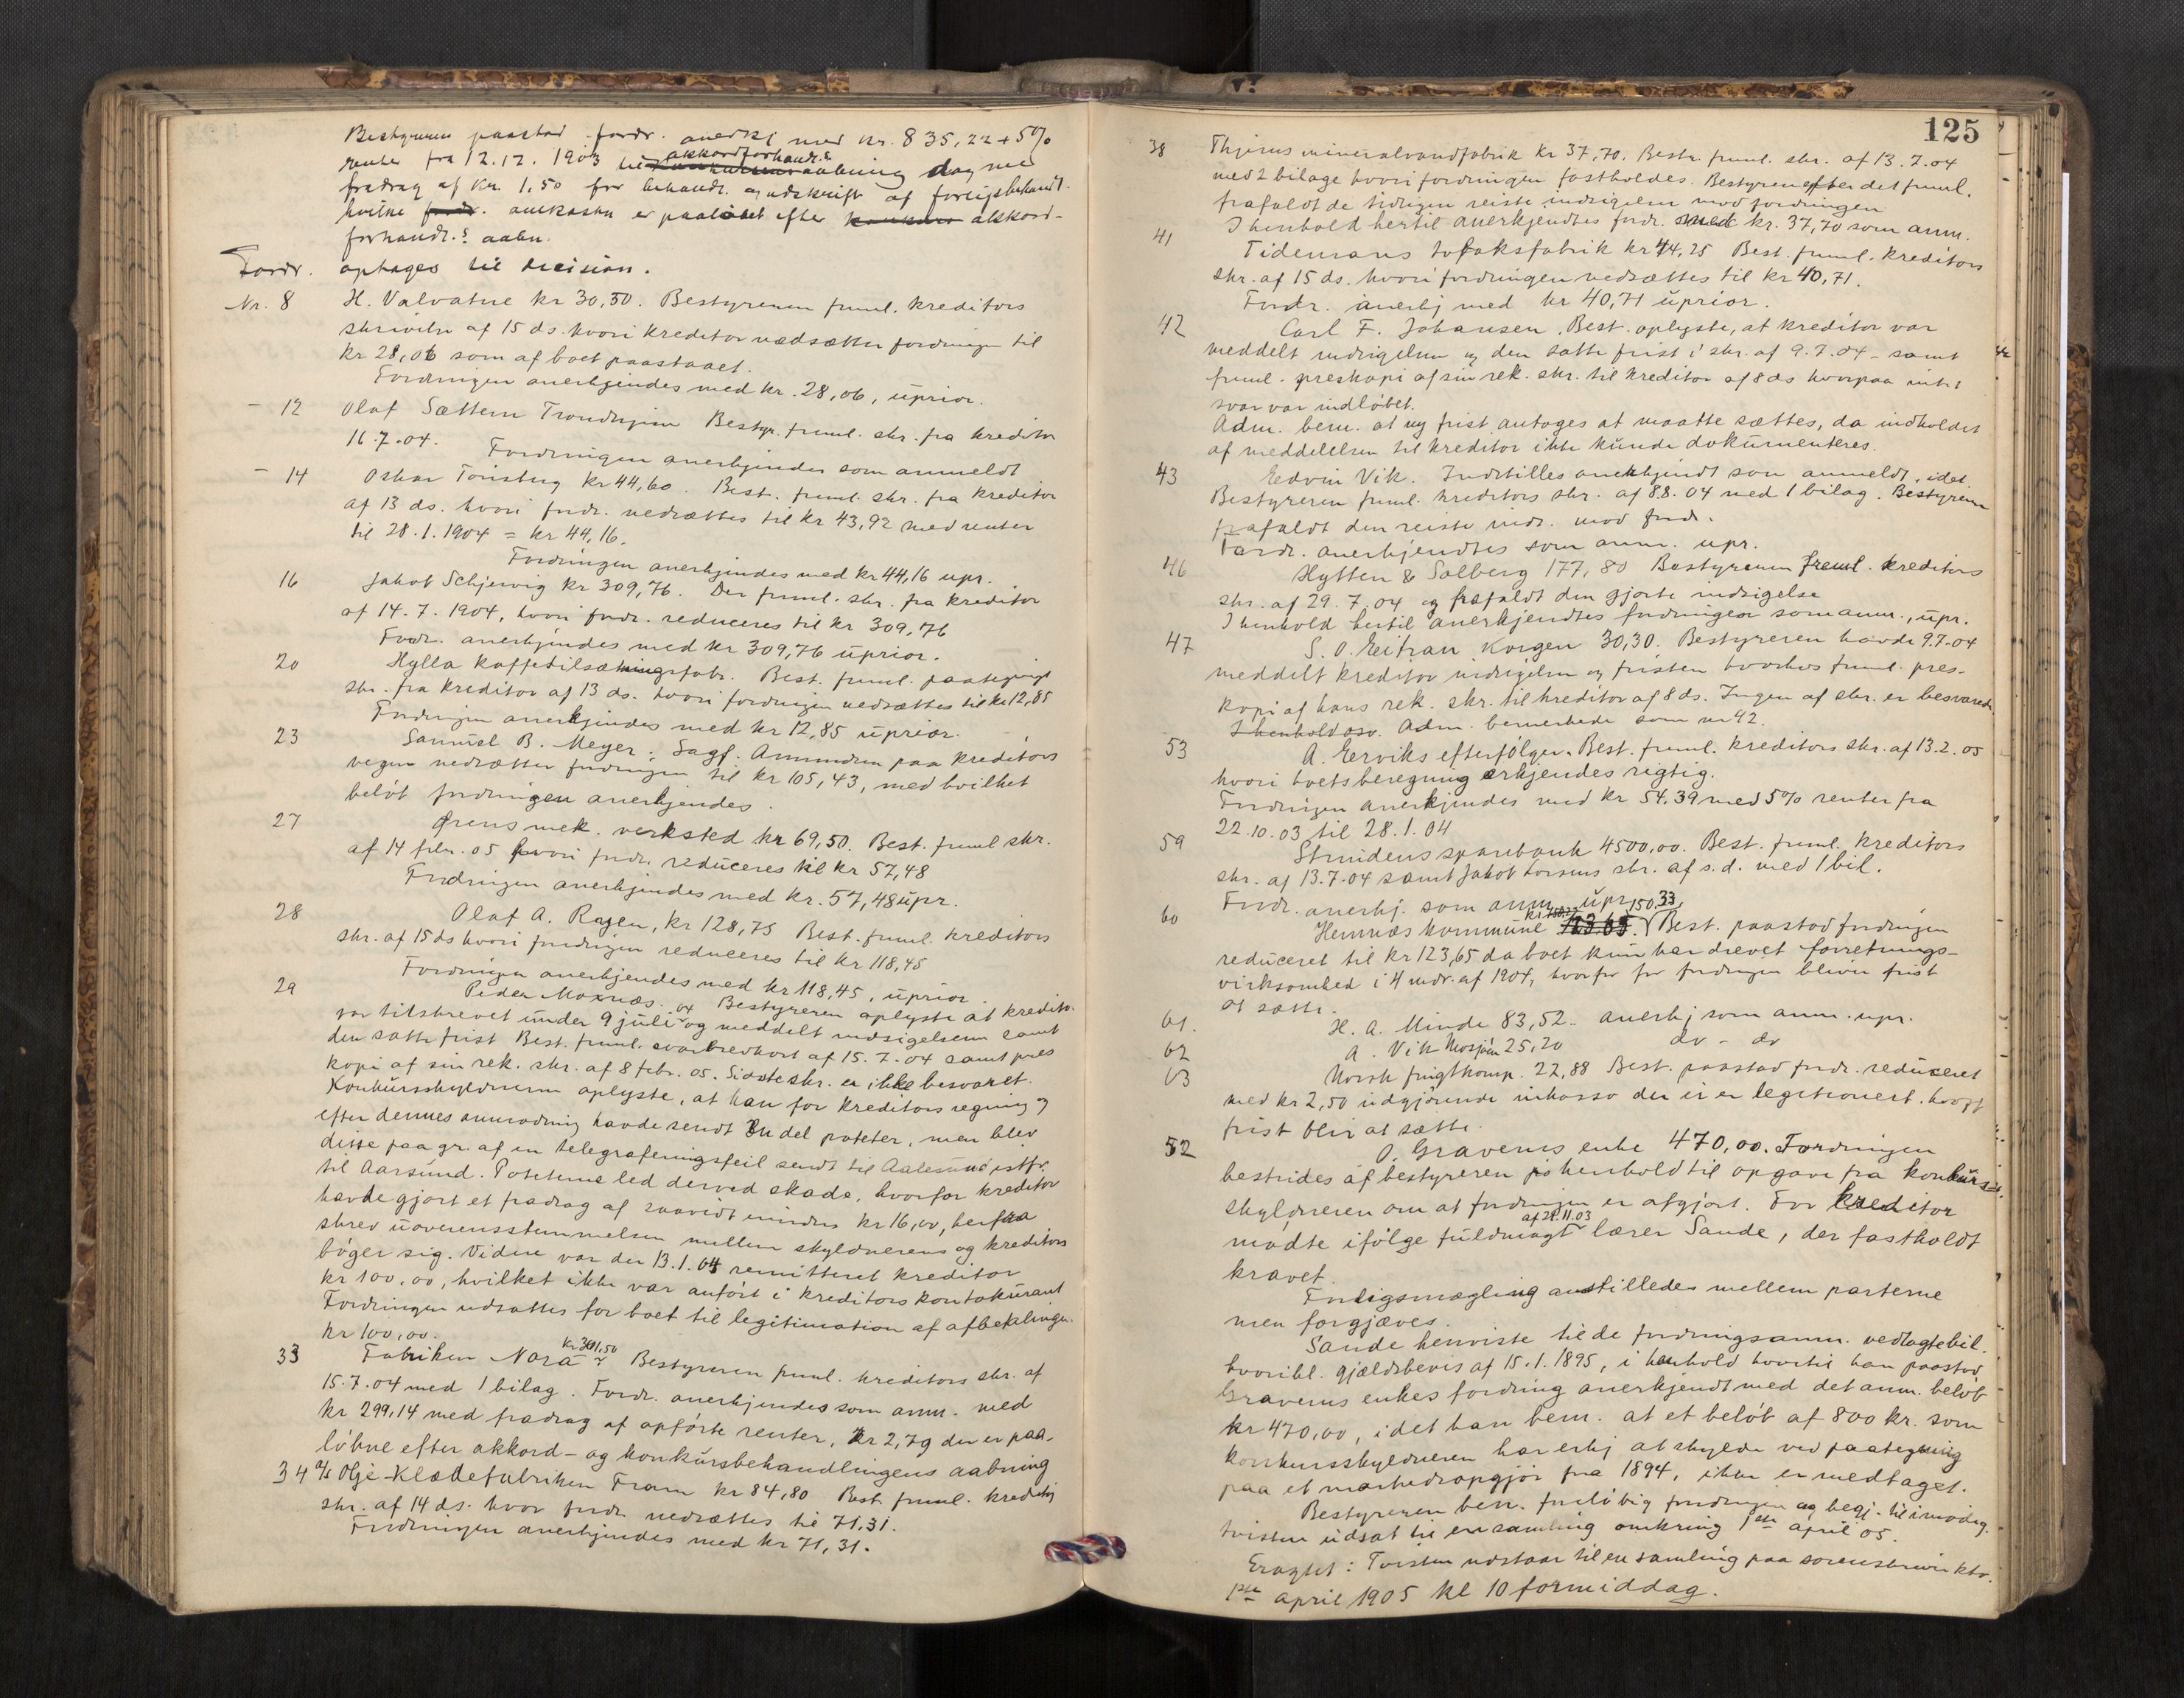 Bestyreren paastod fordr. anerkj med kr. 835,22 + 5%
renter fra 12.12.1903 til akkordforhandl.s aabning dag med
fradrag af kr. 1,50 for behandl. og udskrift af forligsbehandl.
hvilke fordr. omkostn er paaløbet efter konkurs akkord-
forhandl.s aabn.
Fordr. optages til decision.
Nr. 8 H. Valvatne kr 30,50. Bestyreren freml. kreditors
skrivelse af 15 ds. hvori kreditor nedsætter fordringen til
kr 28,06 som af boet paastaaet.
Fordringen anerkjendes med kr. 28,06, uprior.
- 12 Olaf Sættem Trondhjem Bestyr. freml. skr. fra kreditor
16.7.04. Fordringen anerkjendes som anmeldt
- 14 Oskar Tønsberg kr 44,60. Best. freml. skr. fra kreditor
af 13 ds. hvori fordr. nedsættes til kr 43,92 med renter
til 28.1.1904 = kr 44,16.
Fordringen anerkjendes med kr 44,16 upr.
16 Jakob Schjervig kr 309,76. Der freml. skr. fra kreditor
af 14.7.1904, hvori fordr. reduceres til kr 309,76
Fordr. anerkjendes med kr 309,76 uprior.
20 Hylla kaffetilsætningsfabr. Best. freml. paategnet
skr. fra kreditor af 13 ds. hvori fordringen nedsættes til kr 12,85
Fordringen anerkjendes med kr 12,85 uprior.
23 Samuel B. Meyer: Sagf. Amundsen paa kreditors
vegne nedsætter fordringen til kr 105,43, med hvilket
beløb fordringen anerkjendes.
27 Grens mek. verksted kr 69,50. Best. freml skr.
af 14 febr. 05 hvori fordr. reduceres til kr 57,48
Fordringen anerkjendes med kr. 57,48 upr.
28 Olaf A. Ragen, kr 128,75 Best. freml. kreditors
skr. af 15 ds hvori fordringen reduceres til kr 118,45
Fordringen anerkjendes med kr 118,45, uprior.
29 Peder Moxnæs. Bestyreren oplyste at kreditor
var tilskrevet under 9 juli 04 og meddelt indsigelsen samt
den satte frist Best. freml. svarbrevkort af 15.7.04 samt pres
kopi af sin rek. skr. af 8 febr. 05. Sidste skr. er ikke besvaret.
Konkursskyldneren oplyste, at han for kreditors regning og
efter dennes anmodning havde sendt En del poteter, men blev
disse paa gr. af en telegraferingsfeil sendt til Aalesund istf.
til Aarsund. Poteterne led derved skade, hvorfor kreditor
havde gjort et fradrag af saavidt mindes kr 16,00, herfra
skrev uoverensstemmelsen mellem skyldnerens og kreditors
bøger sig. Videre var der 13.1.04 remitteret kreditor
kr 100,00, hvilket ikke var anført i kreditors kontokurant
Fordringen udsattes for boet til legitimation af afbetalingen
kr 100,00.
33 Fabriken Nora kr 301,50 Bestyreren freml. kreditors skr. af
15.7.04 med 1 bilag. Fordr. anerkjendes som anm. med
kr 299,14 med fradrag af opførte renter, kr 2,79 der er paa-
løbne efter akkord- og konkursbehandlingens aabning
34 A/s Olje-Klædefabriken Fram kr 84,80 Best. freml. kreditors
skr. af 14 ds. hvor fordr. nedsættes til 71,31.
Fordringen anerkjendes med kr 71,31.
125
38 Thjerns mineralvandfabrik kr 37,70. Bestr. freml. skr. af 13.7.04
med 2 bilage hvori fordringen fastholdes. Bestyreren efter det freml.
frafaldt de tidligen reiste indsigelser mod fordringen
I henhold hertil anerkjendtes fordr. med kr. 37,70 som anm.
41 Tidemans tobaksfabrik kr 44,25 Best. freml. kreditors
skr. af 15 ds. hvori fordringen nedsættes til kr 40,71.
Fordr. anerkj med kr 40,71 uprior.
42 Carl F. Johansen. Best. oplyste, at kreditor var
meddelt indsigelsen og den satte frist i skr. af 9.7.04 - samt
freml. preskopi af sin rek. skr. til kreditor af 8 ds hvorpaa intet
svar var indløbet.
Adm. bem. at ny frist antages at maatte sættes, da indholdet
af meddelelsen til kreditor ikke kunde dokumenteres.
43 Edvin Vik. Indstilles anerkjendt som anmeldt, idet
Bestyreren freml. kreditors skr. af 8.8.04 med 1 bilag. Bestyreren
frafaldt den reiste inds. mod fordr.
Fordr. anerkjendtes som anm. upr.
46 Hytten & Solberg 177,80 Bestyreren freml. kreditors
skr. af 29.7.04 og frafaldt den gjorte indsigelse
I henhold hertil anerkjendtes fordringen som anm., upr.
47 S. O. Leitran Korgen 30,30. Bestyreren havde 9.7.04
meddelt kreditor indsigelsen og fristen hvorhos freml. pres-
kopi af hans rek. skr. til kreditor af 8 ds. Ingen af skr. er besvaret.
I henhold osv. Adm. bemerkede som nr 42.
53 A. Erviks efterfølger. Best. freml. kreditors skr. af 13.2.05
hvori boets beregning erkjendes rigtig.
Fordringen anerkjendes med kr 54,39 med 5% renter fra
22.10.03 til 28.1.04
59 Strindens sparebank 4500,00. Best. freml. kreditors
skr. af 13.7.04 samt Jakob Larsens skr. af s.d. med 1 bil.
Fordr. anerkj. som anm. upr.
60 Hemnæs kommune kr 150,33. Best. paastod fordringen
reduceret til kr 123,65 da boet kun har drevet forretnings-
virksomhed i 4 mdr. af 1904, hvorfor for fordringen bliver frist
at sætte.
61. H. A. Minde 83,52 - anerkj som anm. upr.
62 A. Vik Mosjøen 25,20 do - do
63 Norsk frugtkomp. 22,88 Best. paastod fordr. reduceret
med kr 2,50 udgjørende inkasso der ei er legitimeret. hvorf
frist blir at sætte.
52 O. Gravems enke 470,00. Fordringen
bestrides af bestyreren i henhold til opgave fra konkurs-
skyldneren om at fordringen er afgjort. For kreditor
mødte ifølge fuldmagt af 21.11.03 lærer Sande, der fastholdt
kravet.
Forligsmægling anstilledes mellem parterne
men forgjæves.
Sande henviste til de fordringsanm. vedlagte bil.
hvoribl. gjældsbevis af 15.1.1895, i henhold hvortil han paastod
Gravems enkes fordring anerkjendt med det anm. beløb
kr 470,00, idet han bem. at et beløb af 800 kr. som
konkursskyldneren har erkj at skylde ved paategning
paa et markedsopgjør fra 1894, ikke er medtaget.
Bestyreren ben. foreløbig fordringen og begj. til imødeg.
tvisten udsat til en samling omkring 1ste april 05.
Eragtet: Tvisten udstaar til en samling paa sorenskriverktr.
1ste april 1905 kl 10 formiddag.